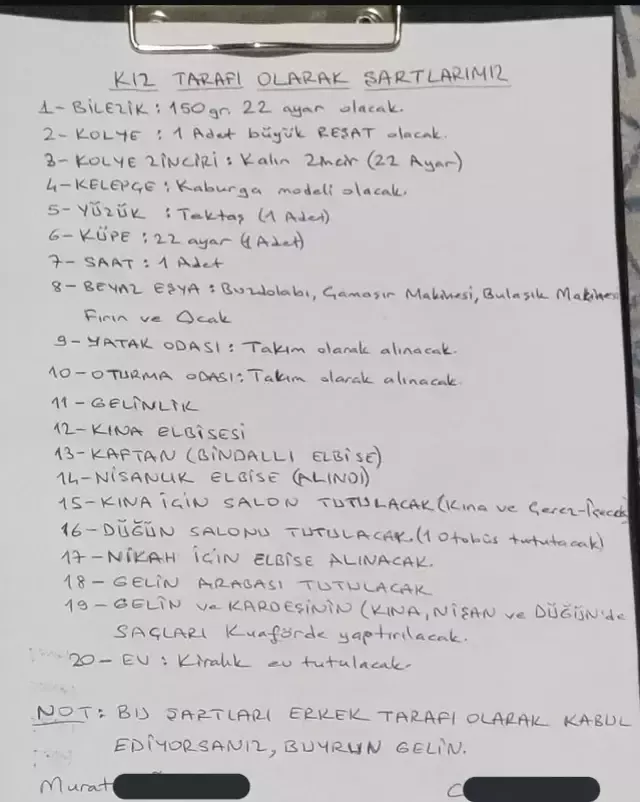 KIZ TARAFI OLARAK ŞARTLARIMIZ
1- BİLEZİK : 150 gr. 22 ayar olacak.
2- KOLYE : 1 Adet büyük REŞAT olacak.
3- KOLYE ZİNCİRİ : Kalın Zincir (22 Ayar)
4- KELEPÇE : Kaburga modeli olacak.
5- YÜZÜK : Tektaş (1 Adet)
6- KÜPE : 22 ayar (1 Adet)
7- SAAT : 1 Adet
8- BEYAZ EŞYA : Buzdolabı, Çamaşır Makinesi, Bulaşık Makinesi
Fırın ve Ocak
9- YATAK ODASI : Takım olarak alınacak.
10- OTURMA ODASI : Takım olarak alınacak.
11- GELİNLİK
12- KINA ELBİSESİ
13- KAFTAN (BİNDALLI ELBİSE)
14- NİŞANLIK ELBİSE (ALINDI)
15- KINA İÇİN SALON TUTULACAK (Kına ve Çerez-İçecek)
16- DÜĞÜN SALONU TUTULACAK. (1 Otobüs tutulacak)
17- NİKAH İÇİN ELBİSE ALINACAK.
18- GELİN ARABASI TUTULACAK
19- GELİN ve KARDEŞİNİN (KINA, NİŞAN ve DÜĞÜN'de
SAÇLARI Kuaförde yaptırılacak.
20- EV : Kiralık ev tutulacak.
NOT : BU ŞARTLARI ERKEK TARAFI OLARAK KABUL
EDİYORSANIZ, BUYRUN GELİN.
Murat